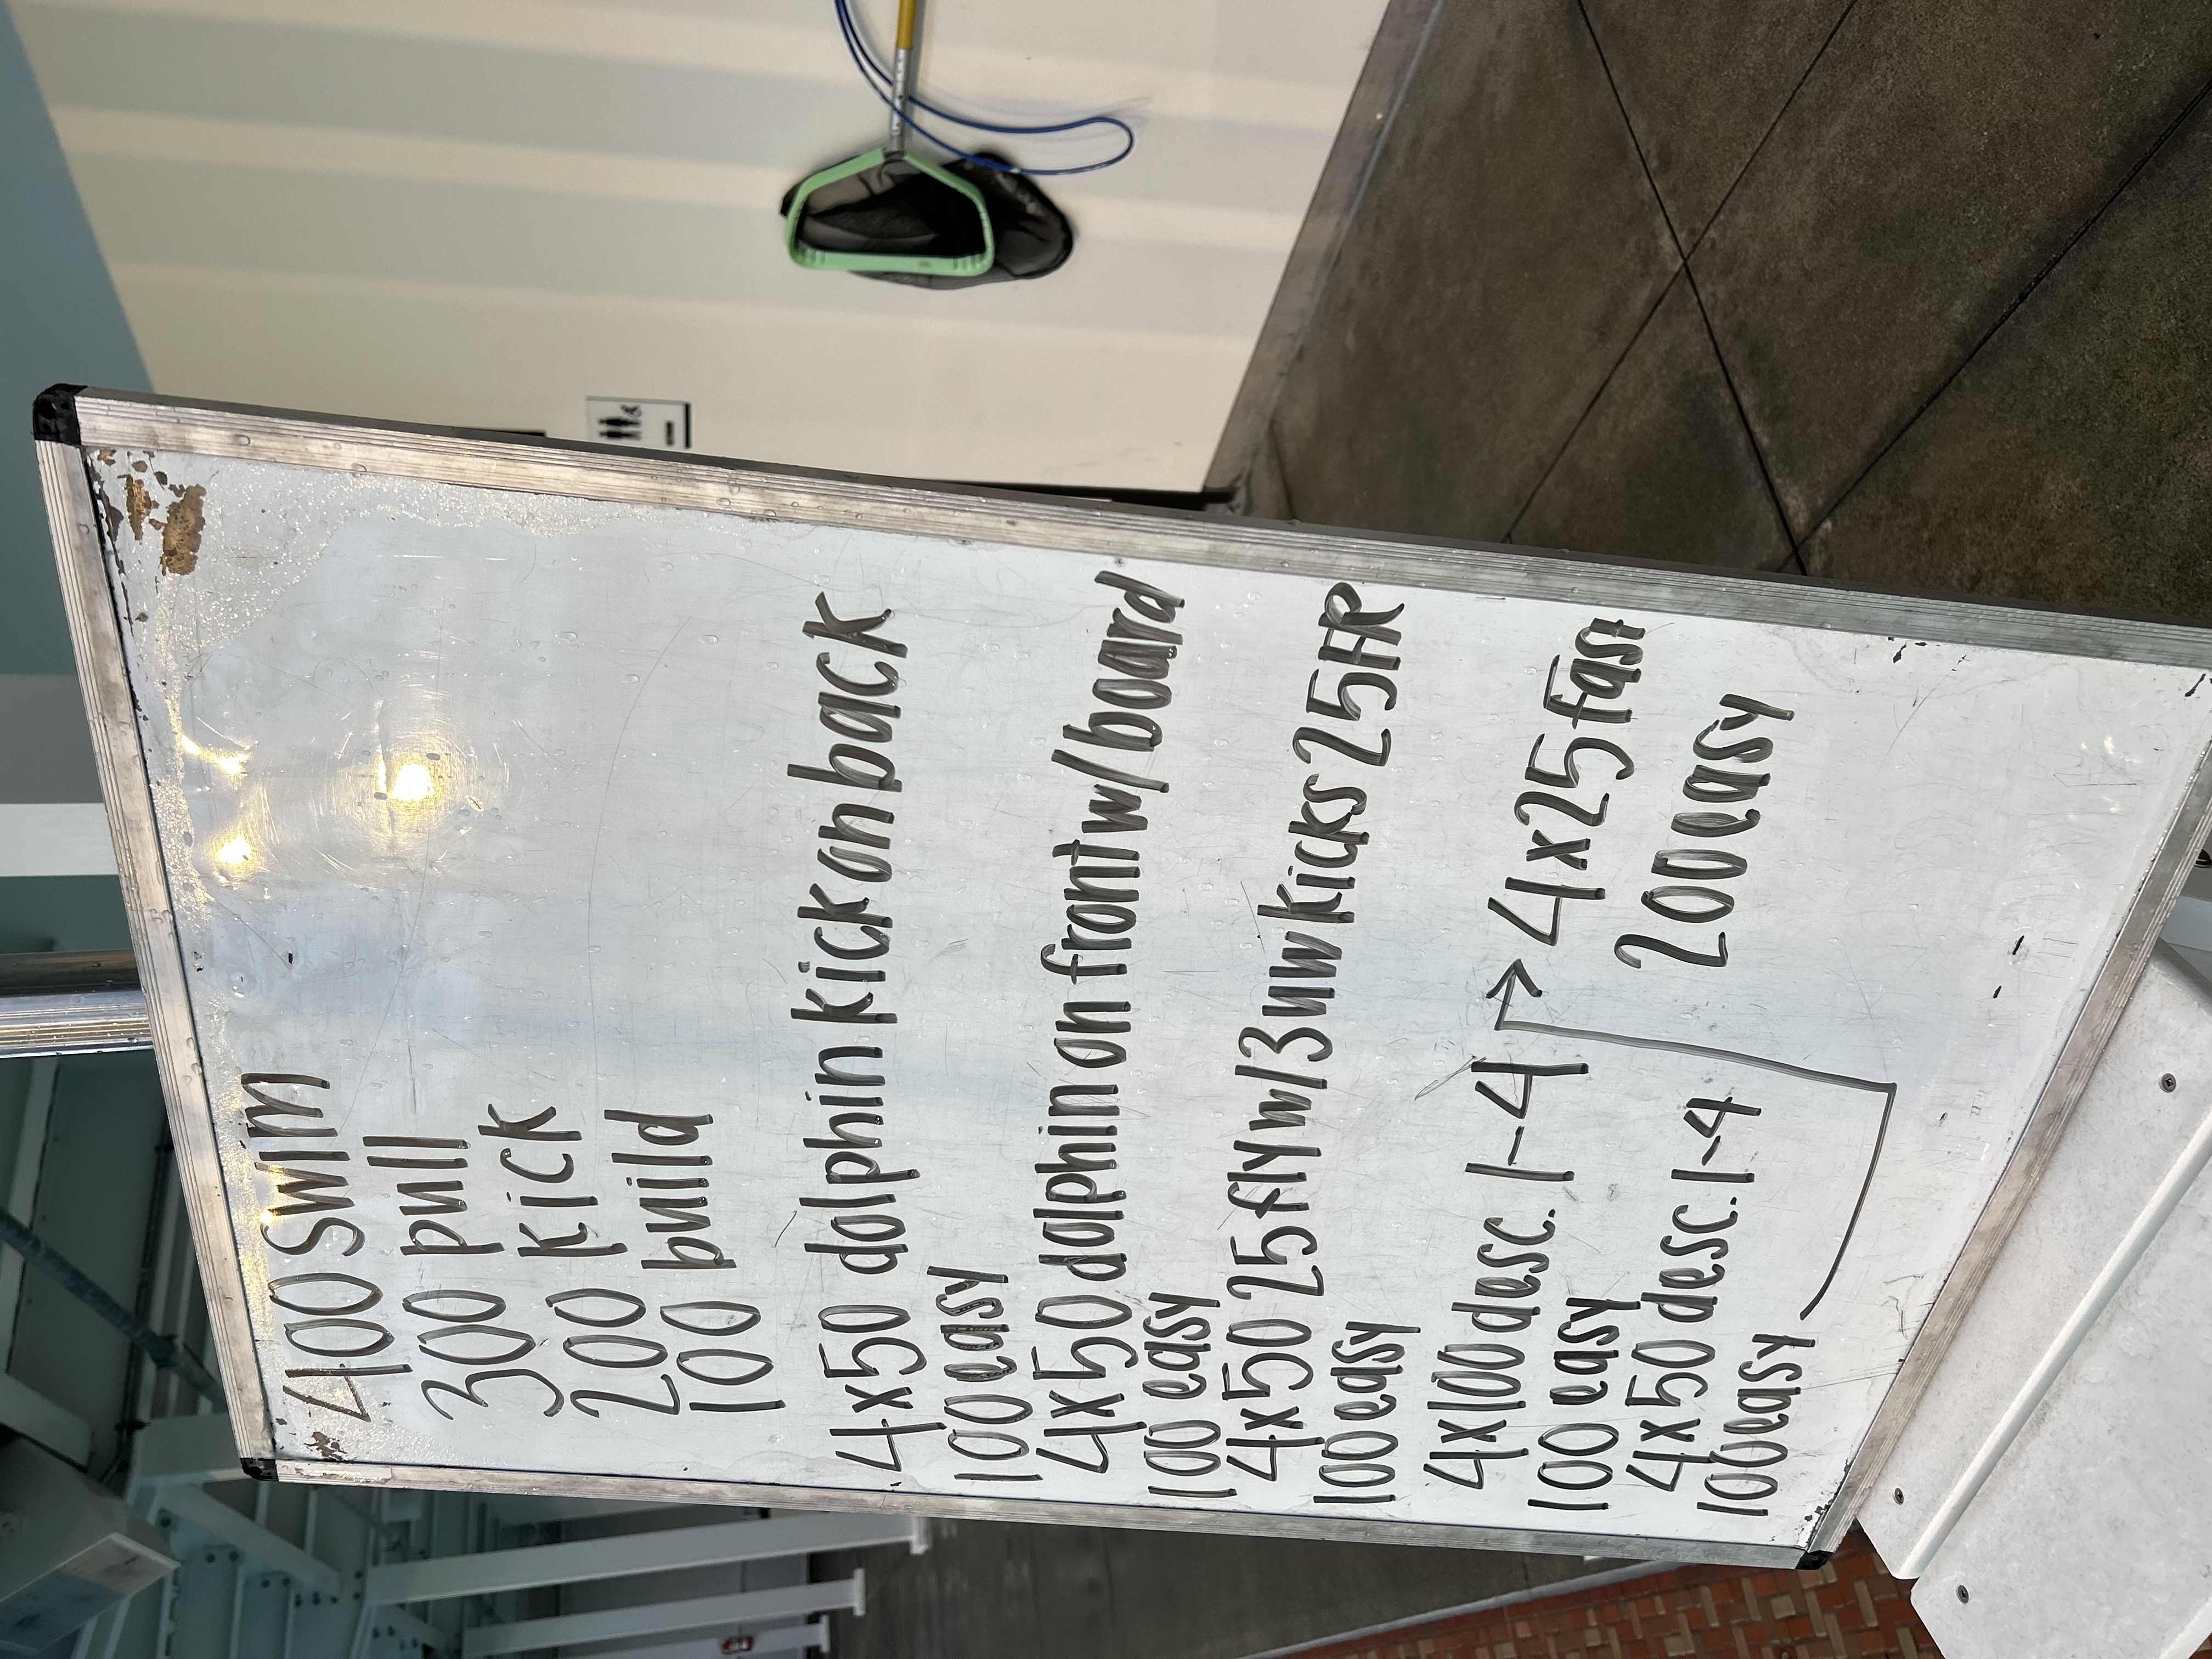 400 swim
300 pull
200 kick
100 build
4x50 dolphin kick on back
100 easy
4x50 dolphin on front w/board
100 easy
4x50 25 fly w/3 uw kicks 25 FR
100 easy
4x100 desc. 1-4
100 easy
4x50 desc. 1-4
100 easy
4x25 fast
200 easy